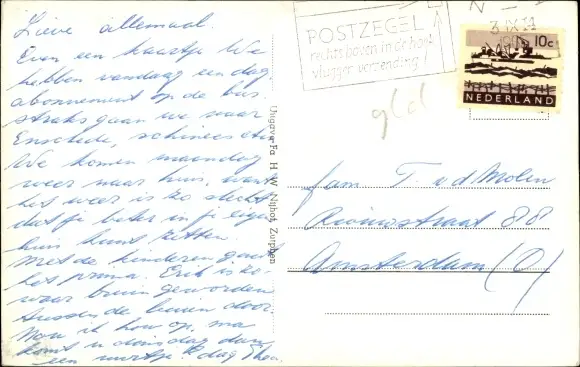 Lieve allemaal
Even een kaartje We
hebben vandaag een dag
abonnement op de bus
straks gaan we naar
Enschede, eten
We komen maandag
weer naar huis, want
het weer is zo slecht
dat je beter in je eigen
huis kunt zitten.
Met de kinderen gaat
het prima. Erik is zo
waar bruin geworden
tussen de buien door.
Nou ik hou op, ma
komt u dinsdag dan
een uurtje? dag
Uitgave Fa H. W. Nijhof, Zutphen
POSTZEGEL
rechts boven in de hoek
vlugger verzending!
N
3 IX
10c
NEDERLAND
gld
fam T. v d Molen
Riouwstraat 88
Amsterdam (O)